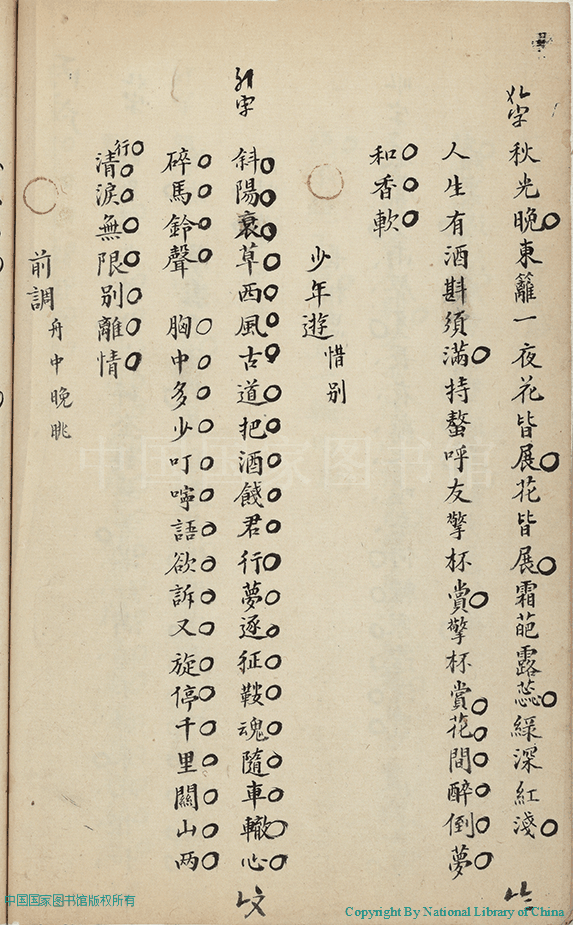 秋光晚東籬一夜花皆展花皆展霜葩露蕊綠深紅淺
人生有酒斟須滿持螯呼友擎杯賞擎杯賞花間醉倒夢
和香軟
少年遊 惜别
斜陽衰草西風古道把酒餞君行夢逐征鞍魂隨車轍心
碎馬鈴聲 胸中多少叮嚀語欲訴又旋停千里關山兩
行清淚無限别離情
前調 舟中晚眺
中国国家图书馆
中国国家图书馆版权所有
Copyright By National Library of China